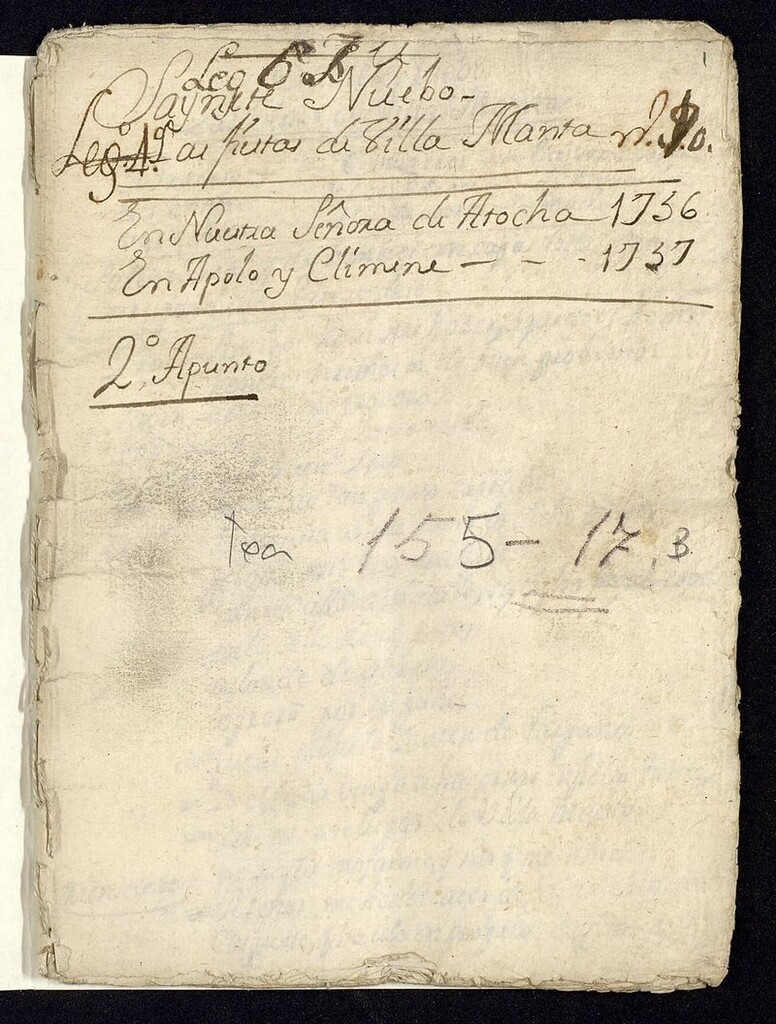 Leg 6º
Saynete Nuebo-
Legº 4º Las fiestas de Villa Manta nº.
En Nuestra Señora de Atocha 1736
En Apolo y Climene - - - 1737
2º. Apunto
Tea 155-17, B